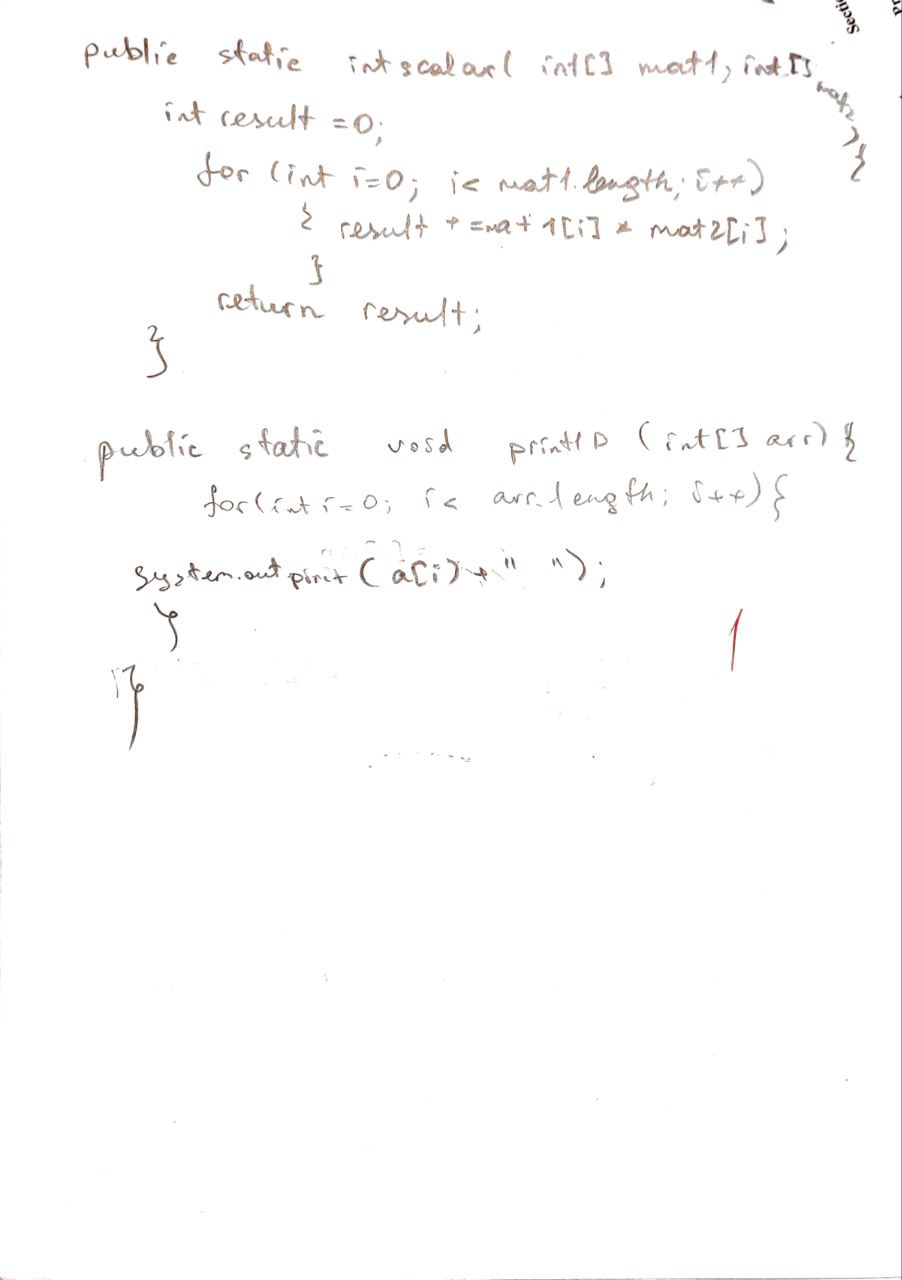 Secti
public static int scalar( int[] mat1, int[] mat2 ) {
int result = 0;
for (int i=0; i< mat1.length; i++)
{ result += mat1[i] * mat2[i];
}
return result;
}
public static void print1D (int[] arr) {
for(int i=0; i< arr.length; i++) {
System.out print (a[i] + " ");
}
}
1